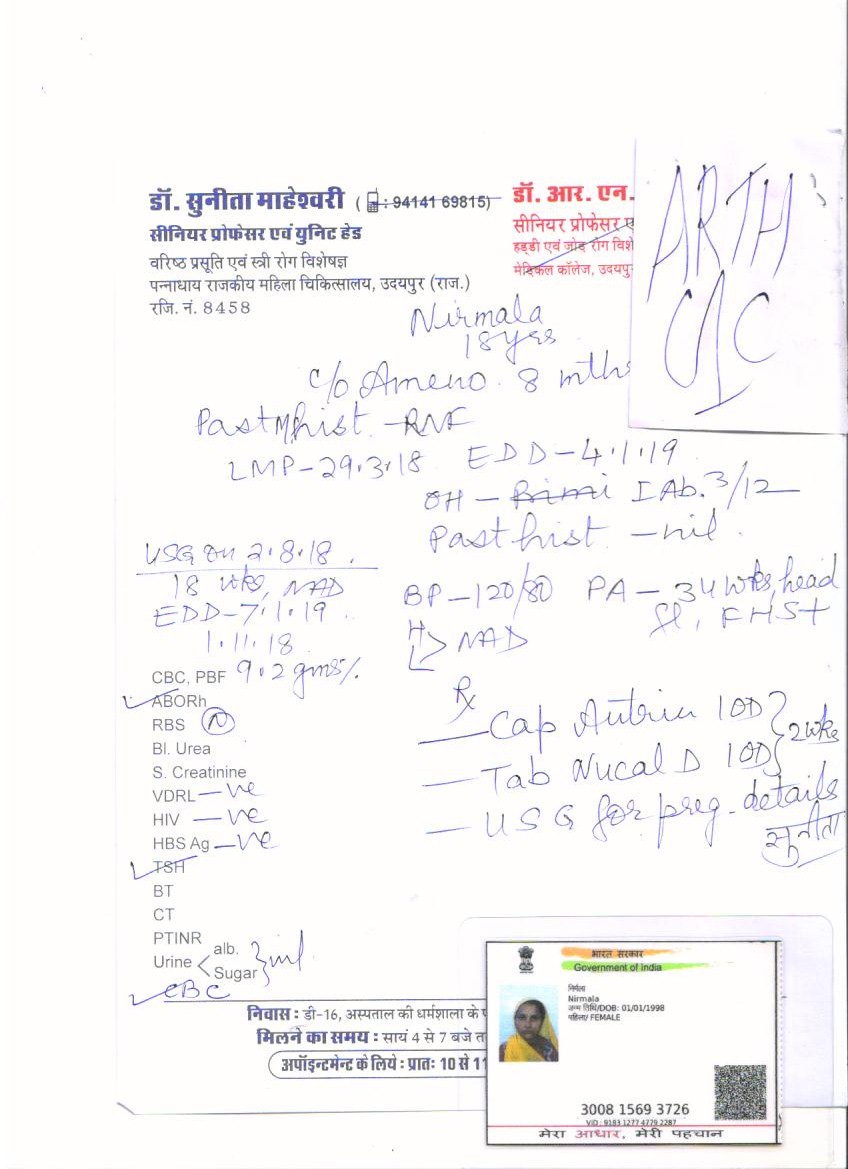 डॉ. सुनीता माहेश्वरी ( : 94141 69815)
सीनियर प्रोफेसर एवं यूनिट हेड
वरिष्ठ प्रसूति एवं स्त्री रोग विशेषज्ञ
पन्नाधाय राजकीय महिला चिकित्सालय, उदयपुर (राज.)
रजि. नं. 8458
डॉ. आर. एन.
सीनियर प्रोफेसर ए
हड्डी एवं जोड़ रोग विशे
मेडिकल कॉलेज, उदयपु
ARTH
Nirmala
18 yrs
c/o Ameno. 8 mths
Past M/hist. -
LMP-29.3.18 EDD-4.1.19
OH - Primi I Ab. 3/12
Past hist. -nil.
USG on 2.8.18.
18 wks, NAD
EDD-7.1.19
1.11.18
BP-120/80 PA-34 wks, head
FHS+
H
L > NAD
CBC, PBF 9.2 gms%
ABORh
RBS N
Bl. Urea
S. Creatinine
VDRL -ve
HIV -ve
HBS Ag -ve
TSH
BT
CT
PTINR
Urine < alb. Sugar } nil
CBC
Rx
- Cap Autrin 1 OD
- Tab Nucal D 1 OD } 2 wks
- USG for preg. details
सुनीता
निवास : डी-16, अस्पताल की धर्मशाला के
मिलने का समय : सायं 4 से 7 बजे त
अपॉइन्टमेन्ट के लिये : प्रातः 10 से 11
भारत सरकार
Government of India
निर्मला
Nirmala
जन्म तिथि/DOB: 01/01/1998
महिला/ FEMALE
3008 1569 3726
VID : 9183 1277 4779 2287
मेरा आधार, मेरी पहचान